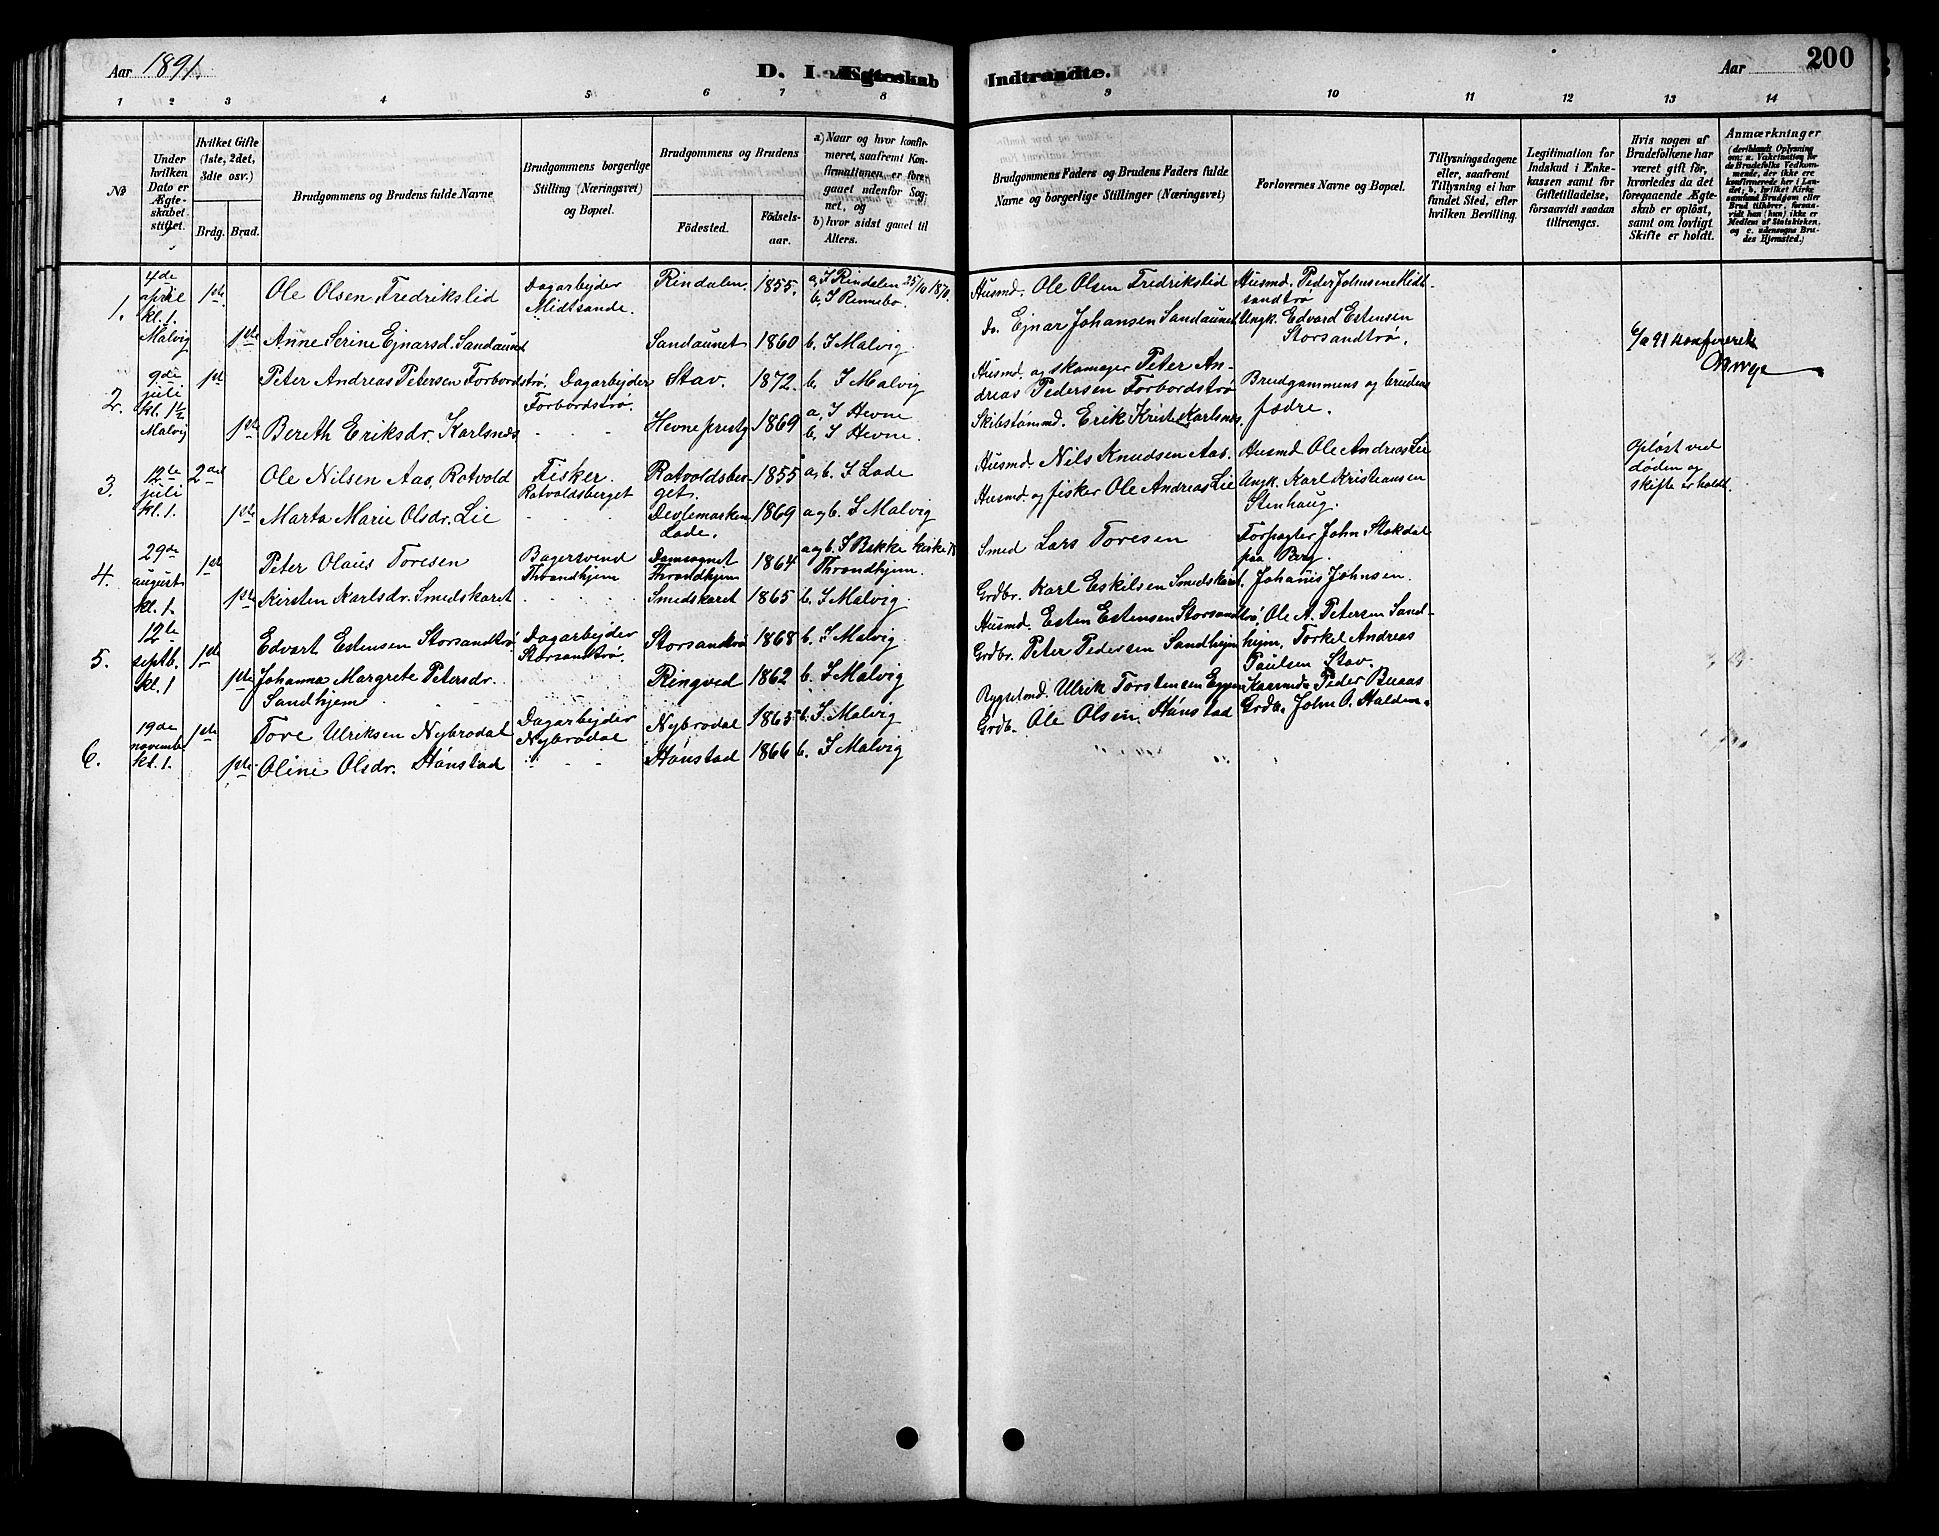 Aar 1891.
D. I Ægteskab Indtraadte.
Aar
200
1 2 3 4 5 6 7 8 9 10 11 12 13 14
No
Under hvilken Dato er Ægteskabet stiftet.
Hvilket Gifte (1ste, 2det, 3die osv.)
Brdg. Brud.
Brudgommens og Brudens fulde Navne
Brudgommens borgerlige Stilling (Næringsvei) og Bopæl.
Brudgommens og Brudens
Födested. Födsels-aar.
a) Naar og hvor konfirmeret, saafremt Konfirmationen er foregaaet udenfor Sognet, og
b) hvor sidst gaaet til Alters.
Brudgommens Faders og Brudens Faders fulde Navne og borgerlige Stillinger (Næringsvei)
Forlovernes Navne og Bopæl.
Tillysningsdagene eller, saafremt Tillysning ei har fundet Sted, efter hvilken Bevilling.
Legitimation for Indskud i Enkekassen samt for Giftetilladelse, forsaavidt saadan tiltrænges.
Hvis nogen af Brudefolkene har været gift før, hvorledes da det foregaaende Ægteskab er oplöst, samt om lovligt Skifte er holdt.
Anmærkninger (deriblandt Oplysning om: a. Vakcination for de Brudefolks Vedkommende, der ikke ere konfirmerede her i Landet; b. hvilket Kirkesamfund Brudgom eller Brud tilhörer, forsaavidt han (hun) ikke er Medlem af Statskirken, og c. udensogns Brudes Hjemsted.)
1. 4de april kl. 1. Malvig 1ste Ole Olsen Fredrikslid Dagarbejder Midtsande. Rindalen 1855. a, I Rindalen 25/10 1870. b. I Rennebo. Husmd. Ole Olsen Fredrikslid Husmd. Peder Johnsen Midtsandtrø
1ste Anne Serine Ejnarsd. Sandaunet Sandaunet 1860 b. I Malvig Do. Ejnar Johansen Sandaunet Ungk. Edvard Estensen Storsandtrø.
2. 9de juli kl. 1½ Malvig 1ste Peter Andreas Petersen Forbordstrø. Dagarbejder Forbordstrø. Stav. 1872. b. I Malvig Husmd. og skomager Peter Andreas Pedersen Forbordstrø Brudgommens og brudens fædre.
1ste Bereth Eriksdr. Karlsnes - - - Hevne prestg 1869 a, I Hevne b. I Hevne. Skibstømmd. Erik Krist. Karlsnes
3. 12te juli kl. 1. 2det Ole Nilsen Aas, Rotvold Fisker. Rotvoldsberget Rotvoldsberget. 1855 a, b. I Lade Husmd. Nils Knudsen Aas. Husmd Ole Andreas Lie Opløst ved døden og skifte er holdt.
1ste Marta Marie Olsdr. Lie - - - Devlemarken Lade. 1869 a og b. I Malvig Husmd. og fisker Ole Andreas Lie Ungk. Karl Kristiansen Stenhaug.
4. 29de august kl. 1. 1ste Peter Olaus Toresen Bagersvend Throndhjem Domsognet Throndhjem 1864 a og b. I Bakke kirke Throndhjem. Smed Lars Toresen Forpagter John Stokdal paa Berg.
1ste Kirsten Karlsdr. Smedskaret - - - Smedskaret 1865 b. I Malvig. Grdbr. Karl Eskilsen Smedskaret. Johanis Johnsen.
5. 12te septb. kl. 1 1ste Edvart Estensen Storsandtrø Dagarbejder Storsandtrø. Storsandtrø 1868 b. I Malvig Husmd. Esten Estensen Storsandtrø, Ole A. Petersen Sandhejm,
1ste Johanna Margrete Petersdr. Sandhjem - - - Ringved 1862 b. I Malvig Grdbr. Peter Pedersen Sandhejm Torkel Andreas Paulsen Stav.
6. 19de novembr kl. 1. 1ste Tore Ulriksen Nybrodal Dagarbejder Nybrodal Nybrodal 1865 b. I Malvig Bygselmd. Ulrik Torstensen Peder Buaas
1ste Oline Olsdr. Hönstad - - - Hönstad 1866 b. I Malvig Grdb. Ole Olsen Hönstad Grdb. John O. Haldem.
91 konfereret